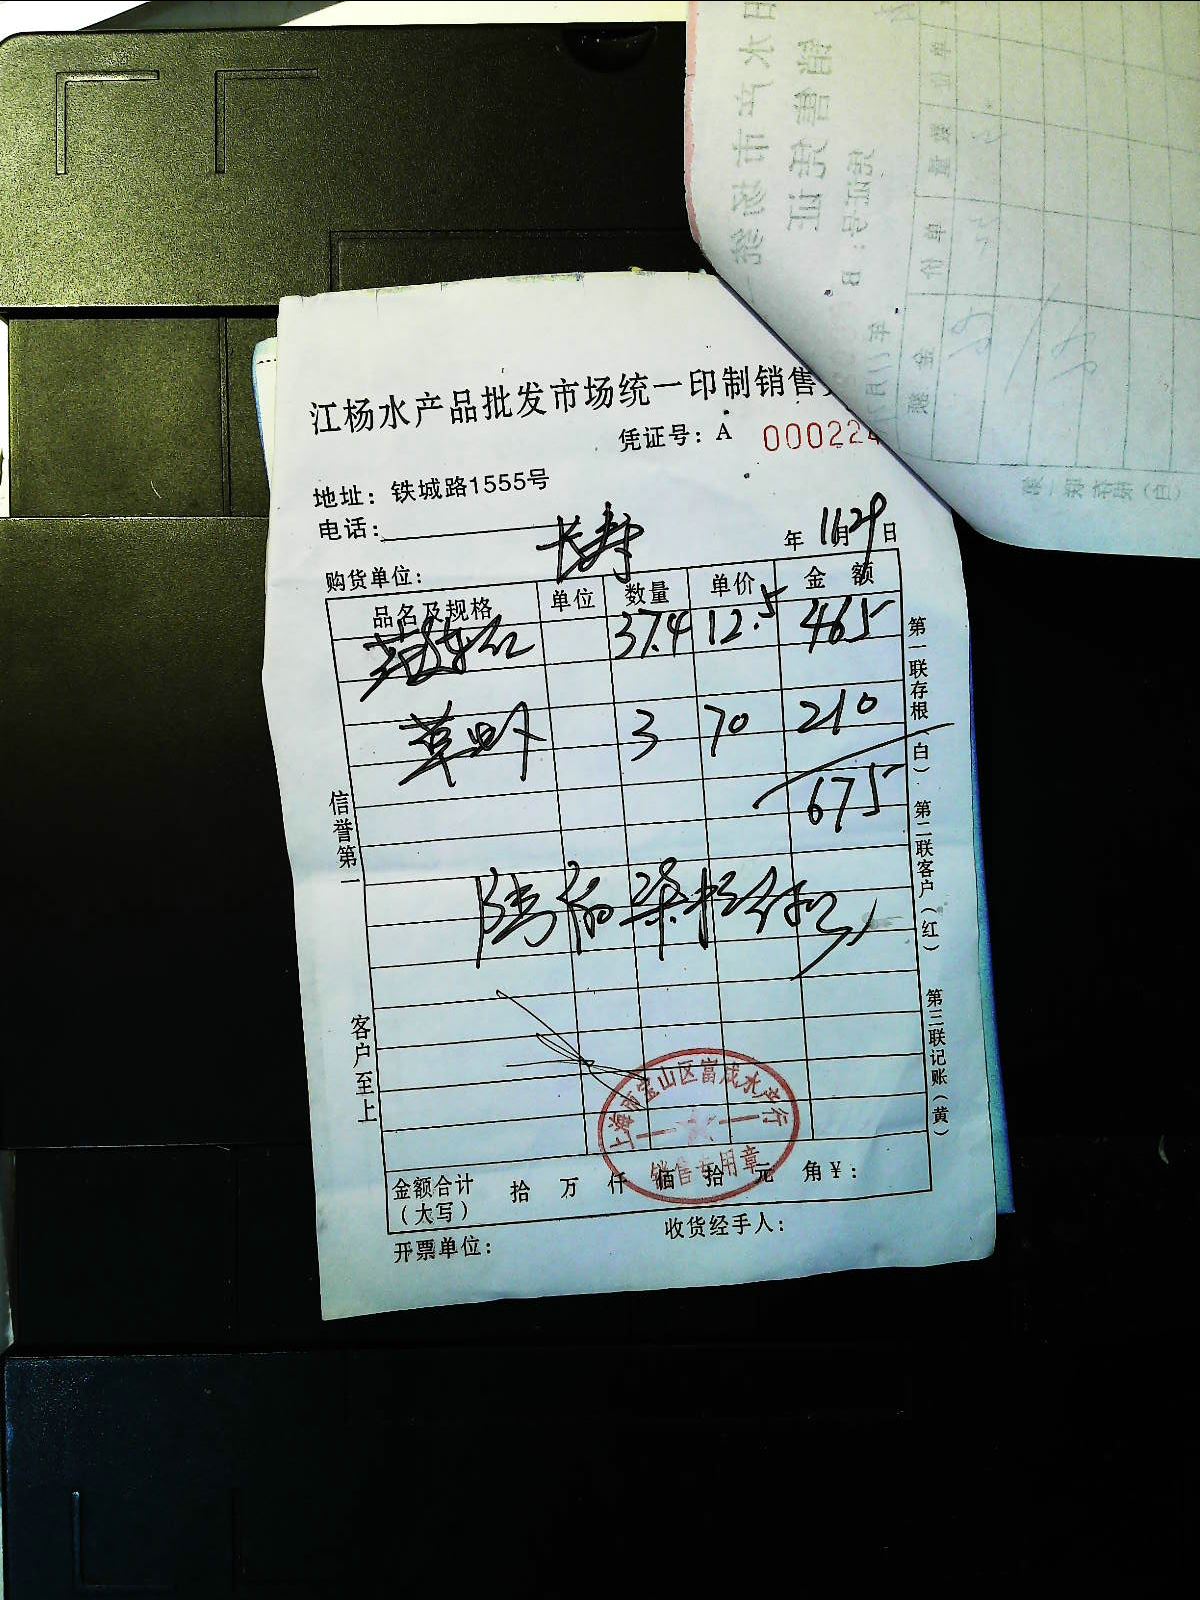 江杨水产品批发市场统一印制销售
凭证号：A 000224
地址：铁城路1555号
电话：
年 11月29日
购货单位： 长寿
品名及规格 单位 数量 单价 金额
37.4 12.5 465
草虾 3 70 210
675
陆佰柒拾伍元
信誉第一
客户至上
第一联存根（白）
第二联客户（红）
第三联记账（黄）
上海市宝山区富成水产行
销售专用章
金额合计（大写） 拾 万 仟 佰 拾 元 角 ¥：
开票单位：
收货经手人：